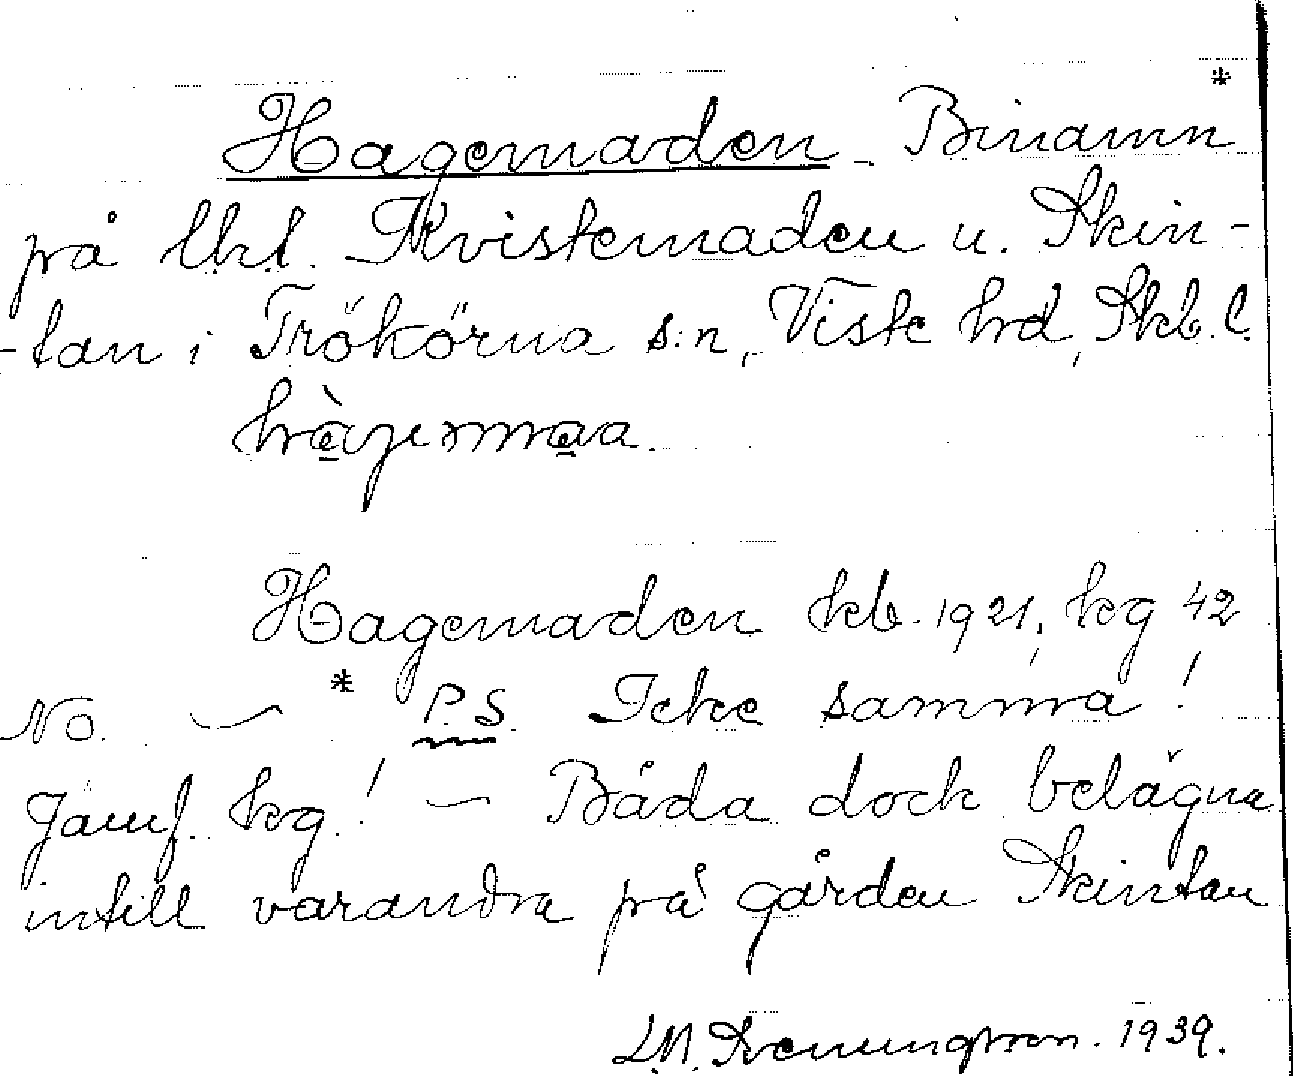 Hagemaden. Binamn *
på lht. Kvistemaden u. Skin-
-tan i Trökörna s:n, Viste hrd, Skb. l.
Hagemaden kb. 1921, kg 42
No. — * P.S. Icke samma!
Jämf. kg! — Båda dock belägna
intill varandra på gården Skintan
1939.